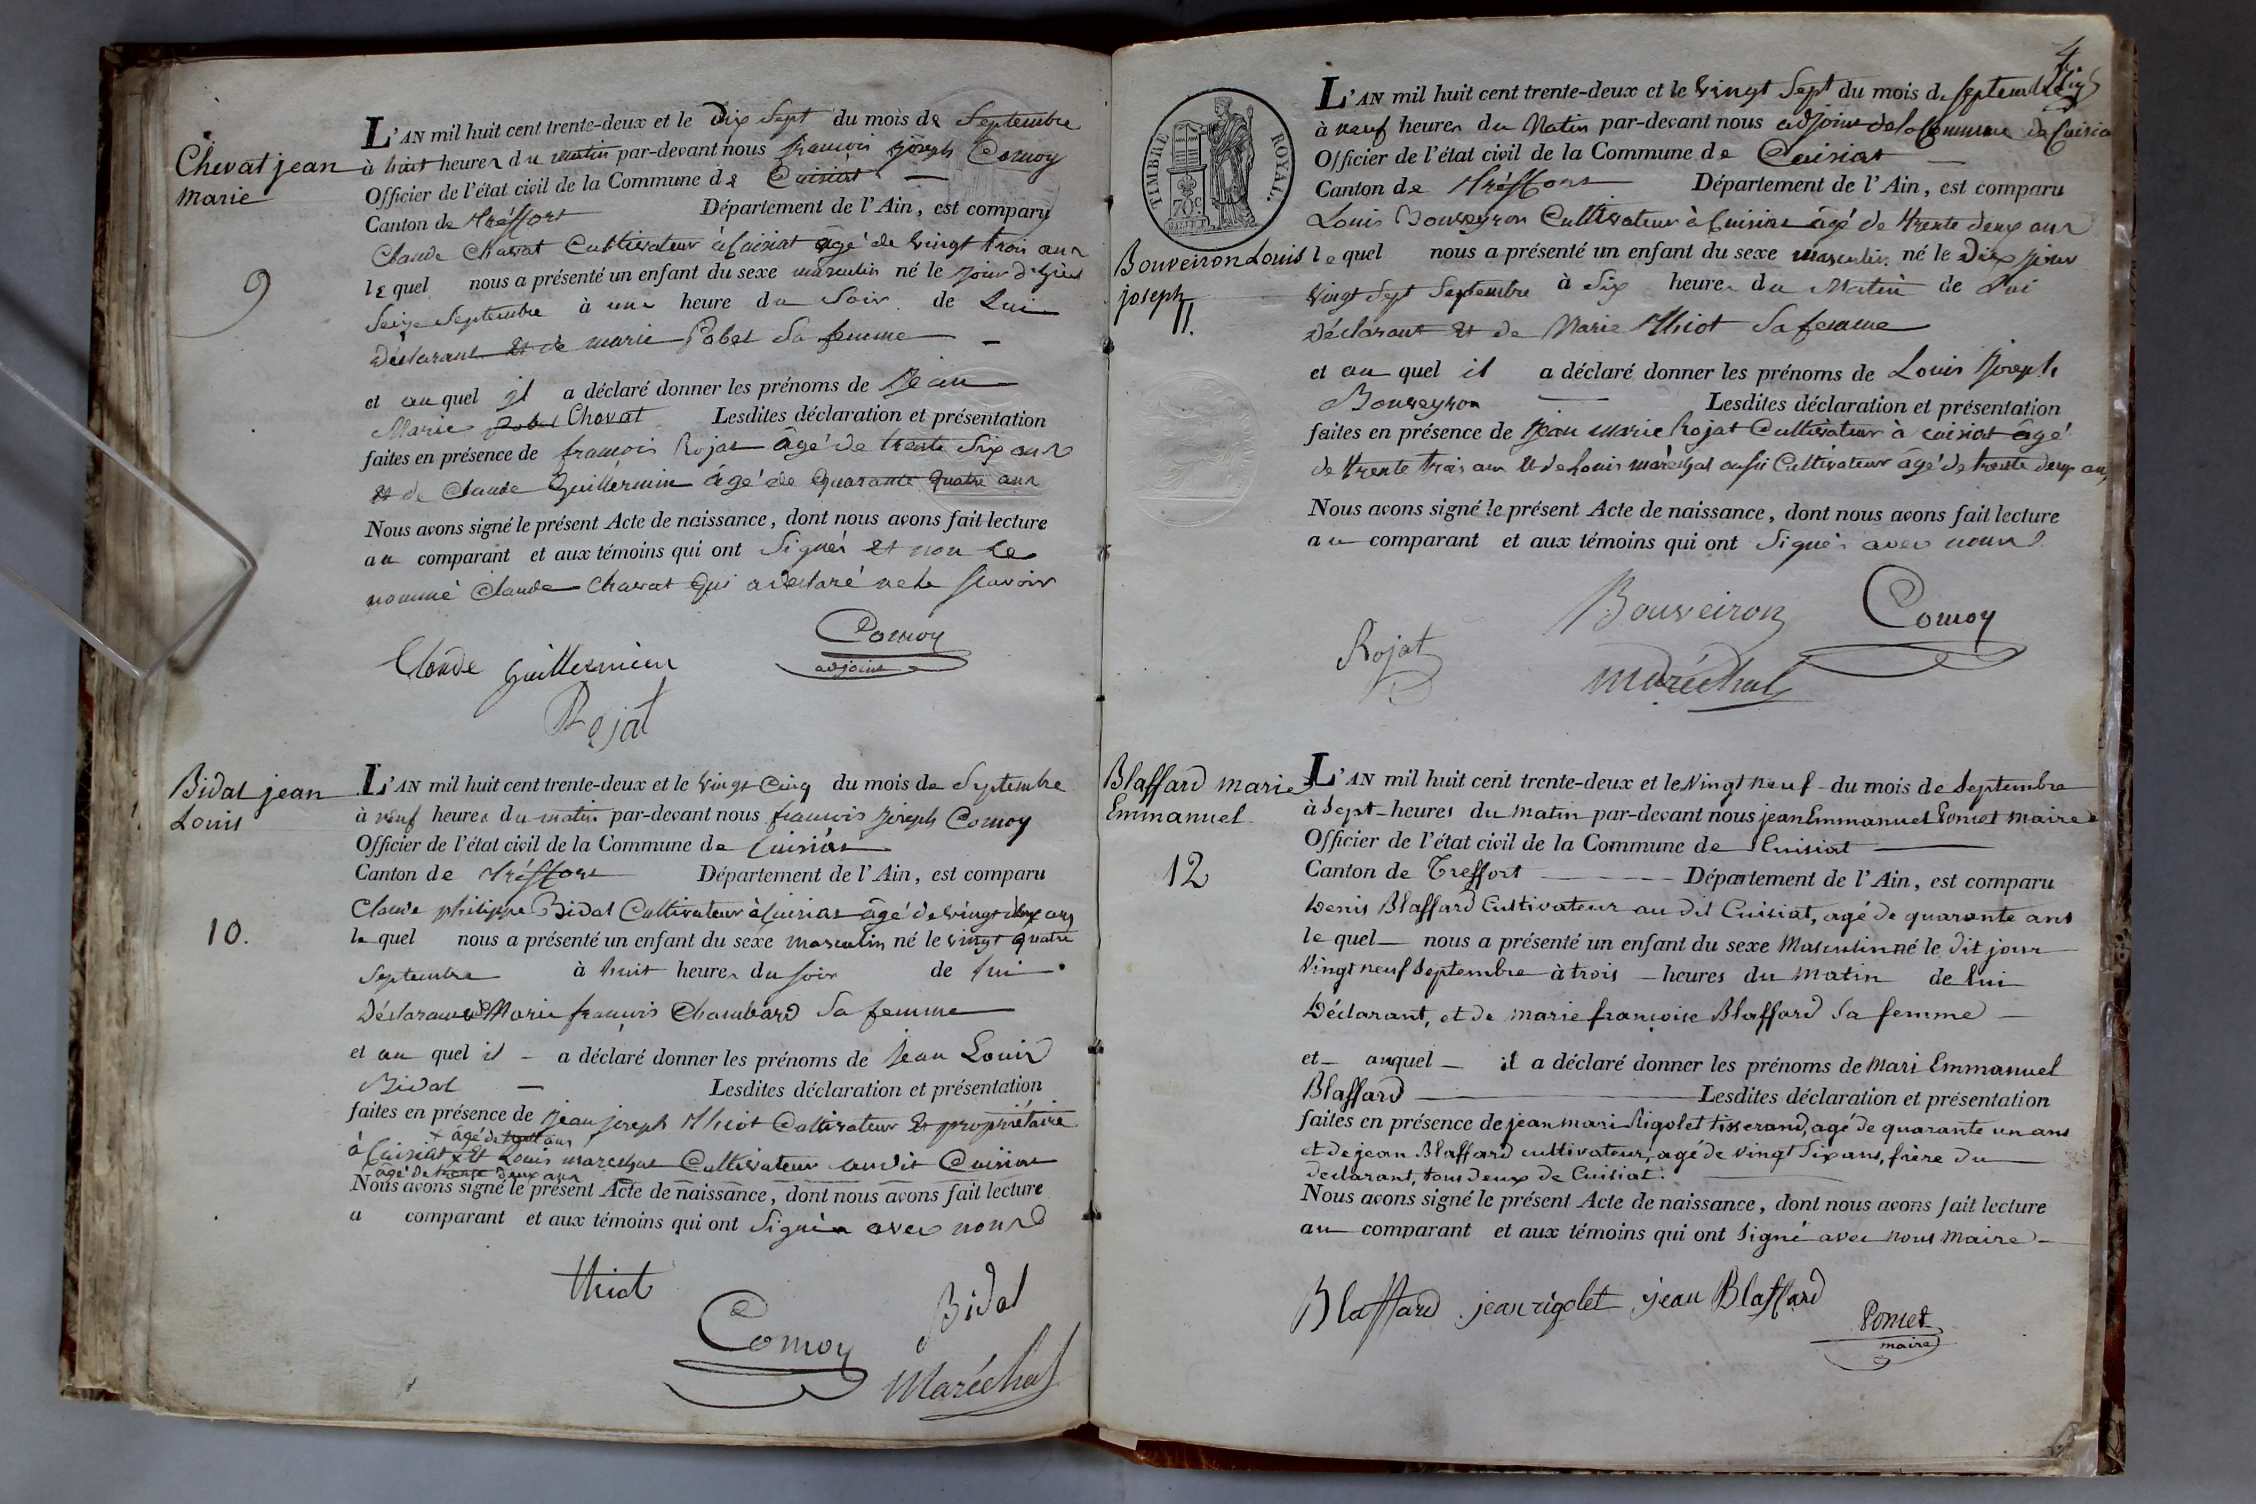 Chevat jean
Marie
9
L'AN mil huit cent trente-deux et le Dix Sept du mois de Septembre
à huit heures du matin par-devant nous françois joseph Comoy
Officier de l'état civil de la Commune de Cuisiat
Canton de Tréffort Département de l'Ain, est comparu
Claude Chavat Cultivateur à Cuisiat âgé de vingt trois ans
le quel nous a présenté un enfant du sexe masculin né le jour d'hier
Seize Septembre à une heure du Soir de Lui
Déclarant et de marie Pobel Sa femme
et au quel il a déclaré donner les prénoms de Jean
Marie Chevat Lesdites déclaration et présentation
faites en présence de françois Rojat âgé de trente Six ans
et de Claude Guillermin âgé de quarante quatre ans
Nous avons signé le présent Acte de naissance, dont nous avons fait lecture
au comparant et aux témoins qui ont Signés et non le
nommé Claude Chavat qui a déclaré ne le sçavoir
Comoy
adjoint
Claude Guillermin
Rojat
Bidal jean
Louis
10.
L'AN mil huit cent trente-deux et le vingt Cinq du mois de Septembre
à neuf heures du matin par-devant nous françois joseph Comoy
Officier de l'état civil de la Commune de Cuisiat
Canton de Tréffort Département de l'Ain, est comparu
Claude philippe Bidal Cultivateur à Cuisiat âgé de vingt deux ans
le quel nous a présenté un enfant du sexe masculin né le vingt quatre
Septembre à huit heures du soir de lui
Déclarant et Marie françois Chambard Sa femme
et au quel il a déclaré donner les prénoms de Jean Louis
Bidal Lesdites déclaration et présentation
faites en présence de Jean joseph Thiot Cultivateur et propriétaire
+ âgé de ans
à Cuisiat + Et Louis marechal Cultivateur audit Cuisiat
âgé de trente deux ans
Nous avons signé le présent Acte de naissance, dont nous avons fait lecture
a comparant et aux témoins qui ont Signés avec nous
Thiot
Bidal
Comoy
Maréchal
4
TIMBRE ROYAL
70c
Bouveiron Louis
joseph
11.
L'AN mil huit cent trente-deux et le vingt Sept du mois de septembre
à neuf heures du Matin par-devant nous adjoint de la Commune de Cuisiat
Officier de l'état civil de la Commune de Cuisiat
Canton de Tréffort Département de l'Ain, est comparu
Louis Bouveyron Cultivateur à Cuisiat âgé de trente deux ans
le quel nous a présenté un enfant du sexe masculin né le Dix jour
vingt Sept Septembre à Six heures du Matin de Lui
Déclarant et de Marie Thiot Sa femme
et au quel il a déclaré donner les prénoms de Louis Joseph
Bouveyron Lesdites déclaration et présentation
faites en présence de Jean marie Rojat Cultivateur à cuisiat âgé
de trente trois ans et de Louis maréchal aussi Cultivateur âgé de trente deux ans
Nous avons signé le présent Acte de naissance, dont nous avons fait lecture
au comparant et aux témoins qui ont Signés avec nous
Bouveiron Comoy
Rojat
maréchal
Blaffard marie
Emmanuel
12
L'AN mil huit cent trente-deux et le Vingt neuf du mois de Septembre
à Sept heures du matin par-devant nous jean Emmanuel Poncet maire
Officier de l'état civil de la Commune de Cuisiat
Canton de Treffort Département de l'Ain, est comparu
Denis Blaffard Cultivateur au dit Cuisiat, agé de quarante ans
le quel nous a présenté un enfant du sexe Masculin né le dit jour
Vingt neuf Septembre à trois heures du matin de lui
Déclarant, et de marie françoise Blaffard Sa femme
et auquel il a déclaré donner les prénoms de Mari Emmanuel
Blaffard Lesdites déclaration et présentation
faites en présence de jean mari Rigolet tisserand, agé de quarante un ans
et de jean Blaffard cultivateur, agé de vingt Six ans, frère du
declarant, tous deux de Cuisiat.
Nous avons signé le présent Acte de naissance, dont nous avons fait lecture
au comparant et aux témoins qui ont Signé avec nous maire
Blaffard jean rigolet jean Blaffard
Poncet
maire